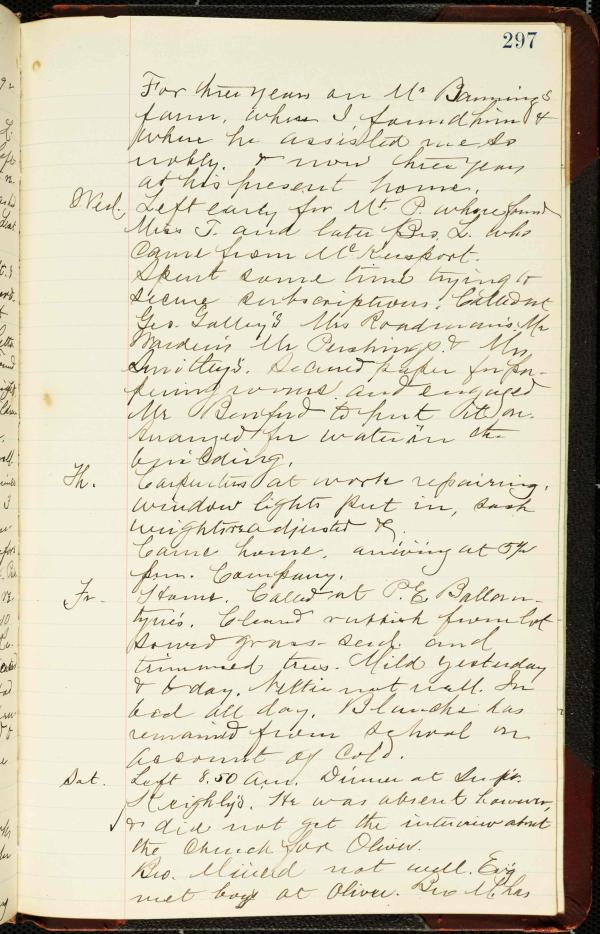 297
For three years on Mr Banning's
farm, where I found him &
where he assisted me so
nobly. & now three years
at his present home.
Wed. Left early for Mt. P. where found
Miss T. and later Bro. L. who
came from McKeesport.
Spent some time trying to
secure subscriptions. Called at
Geo. Galley's Mrs Roadman's, Mr
Warden's Mr Pershing's & Mrs
Smitley's. Secured paper for pa-
pering rooms and engaged
Mr to put it on.
Arranged for water in the
building.
Th. Carpenters at work repairing.
window lights put in, sash
weights readjusted &.
Came home, arriving at
pm. Company.
Fr. Home. Called at P. E. Ballan-
tyne's. Cleaned rubbish from lot
sowed grass-seed and
trimmed trees. Mild yesterday
& to day. Nettie not well. In
bed all day. Blanche has
remained from school on
account of cold.
Sat. Left 8.50 am. Dinner at Supt.
Keighly's. He was absent however,
& did not get the interview about
the Church for Oliver.
Bro. not well. Ev'g
met boys at Oliver. Bro M. has